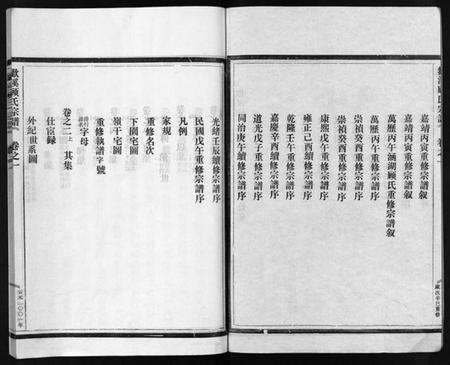 嘉靖丙寅重修宗譜叙
嘉靖丙寅重修宗譜叙
萬歷丙午涵湖顧氏重修宗譜叙
萬歷丙午重修宗譜叙
崇禎癸酉重修宗譜叙
崇禎癸酉重修宗譜序
康熙戊午重修宗譜序
雍正己酉續修宗譜序
乾隆壬午重修宗譜序
嘉慶辛酉續修宗譜序
道光戊子重修宗譜序
同治庚午續修宗譜序
光緒壬辰續修宗譜序
民國戊午重修宗譜序
凡例
家規
重修名次
下園宅圖
嶺干宅圖
重修執譜字號
字母
卷之二上 其集
仕宦録
外紀世系圖
顧氏宗譜
卷之一